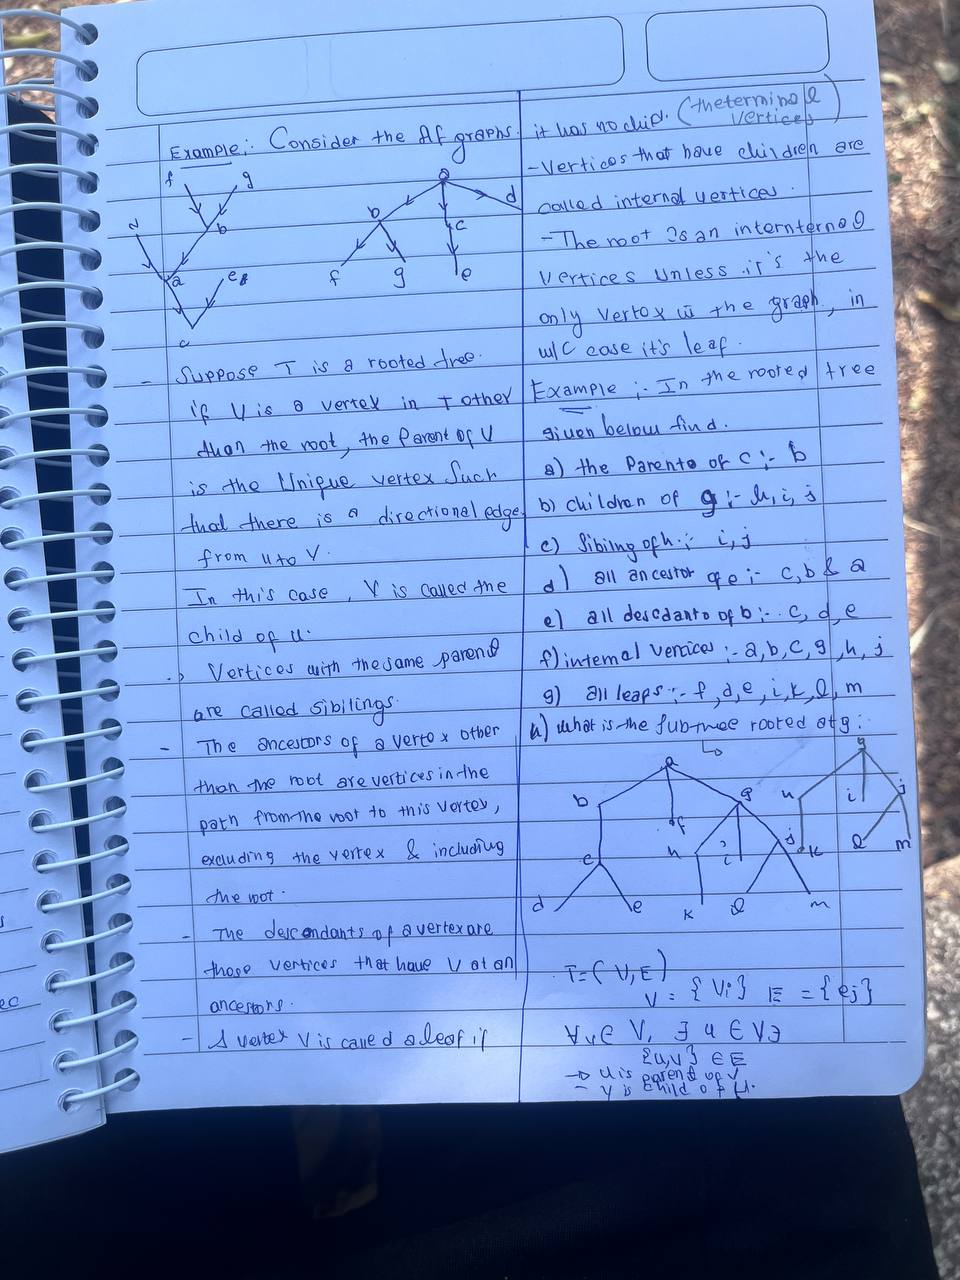 Example:- Consider the Af graphs.
f g
d b
a e
c
a
b c d
f g e
- Suppose T is a rooted tree.
if V is a vertex in T other
than the root, the Parent of V
is the Unique vertex Such
that there is a directional edge
from u to V.
In this case, V is called the
child of u.
Vertices with the same parend
are called Sibilings.
- The ancestors of a vertex other
than the root are vertices in the
path from the root to this vertex,
excluding the vertex & including
the root.
- The descendants of a vertex are
those vertices that have V at an
ancestors.
- A vertex V is called a leaf if
it has no chid. (the terminal
vertices)
- Vertices that have children are
called internal vertices.
- The root is an internternal
vertices unless it's the
only vertex in the graph, in
w/c case it's leaf.
Example :- In the rooted tree
given below find.
a) the Parento of c :- b
b) children of g :- h, i, j
c) Sibilng of h :- i, j
d) all ancestor of e :- c, b & a
e) all descdants of b :- c, d, e
f) internal vertices :- a, b, c, g, h, j
g) all leafs :- f, d, e, i, k, l, m
h) what is the sub-tree rooted at g :-
a g
b g h i j
f k l m
c h i j
d e k l m
T = (V, E)
V = {Vi} E = {ej}
∀v ∈ V, ∃ u ∈ V ∋
{u,v} ∈ E
→ u is parent of V
- V is child of u.